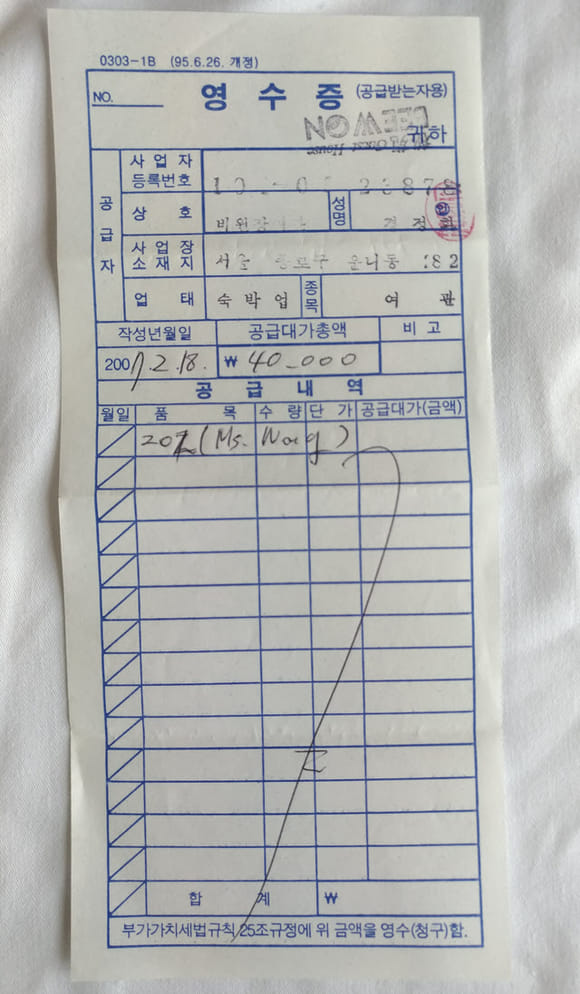 0303-1B (95.6.26. 개정)
NO.
영 수 증 (공급받는자용)
BEEWON
Guest House
귀하
공급자
사업자
등록번호
23878
상 호
비원
성명
정
사업장
소재지
서울 종로구 운니동 182
업 태
숙박업
종목
여 관
작성년월일
공급대가총액
비 고
2007.2.18.
₩ 40-000
공 급 내 역
월일 품 목 수 량 단 가 공급대가(금액)
(Ms.
합 계 ₩
부가가치세법규칙 25조규정에 위 금액을 영수(청구)함.